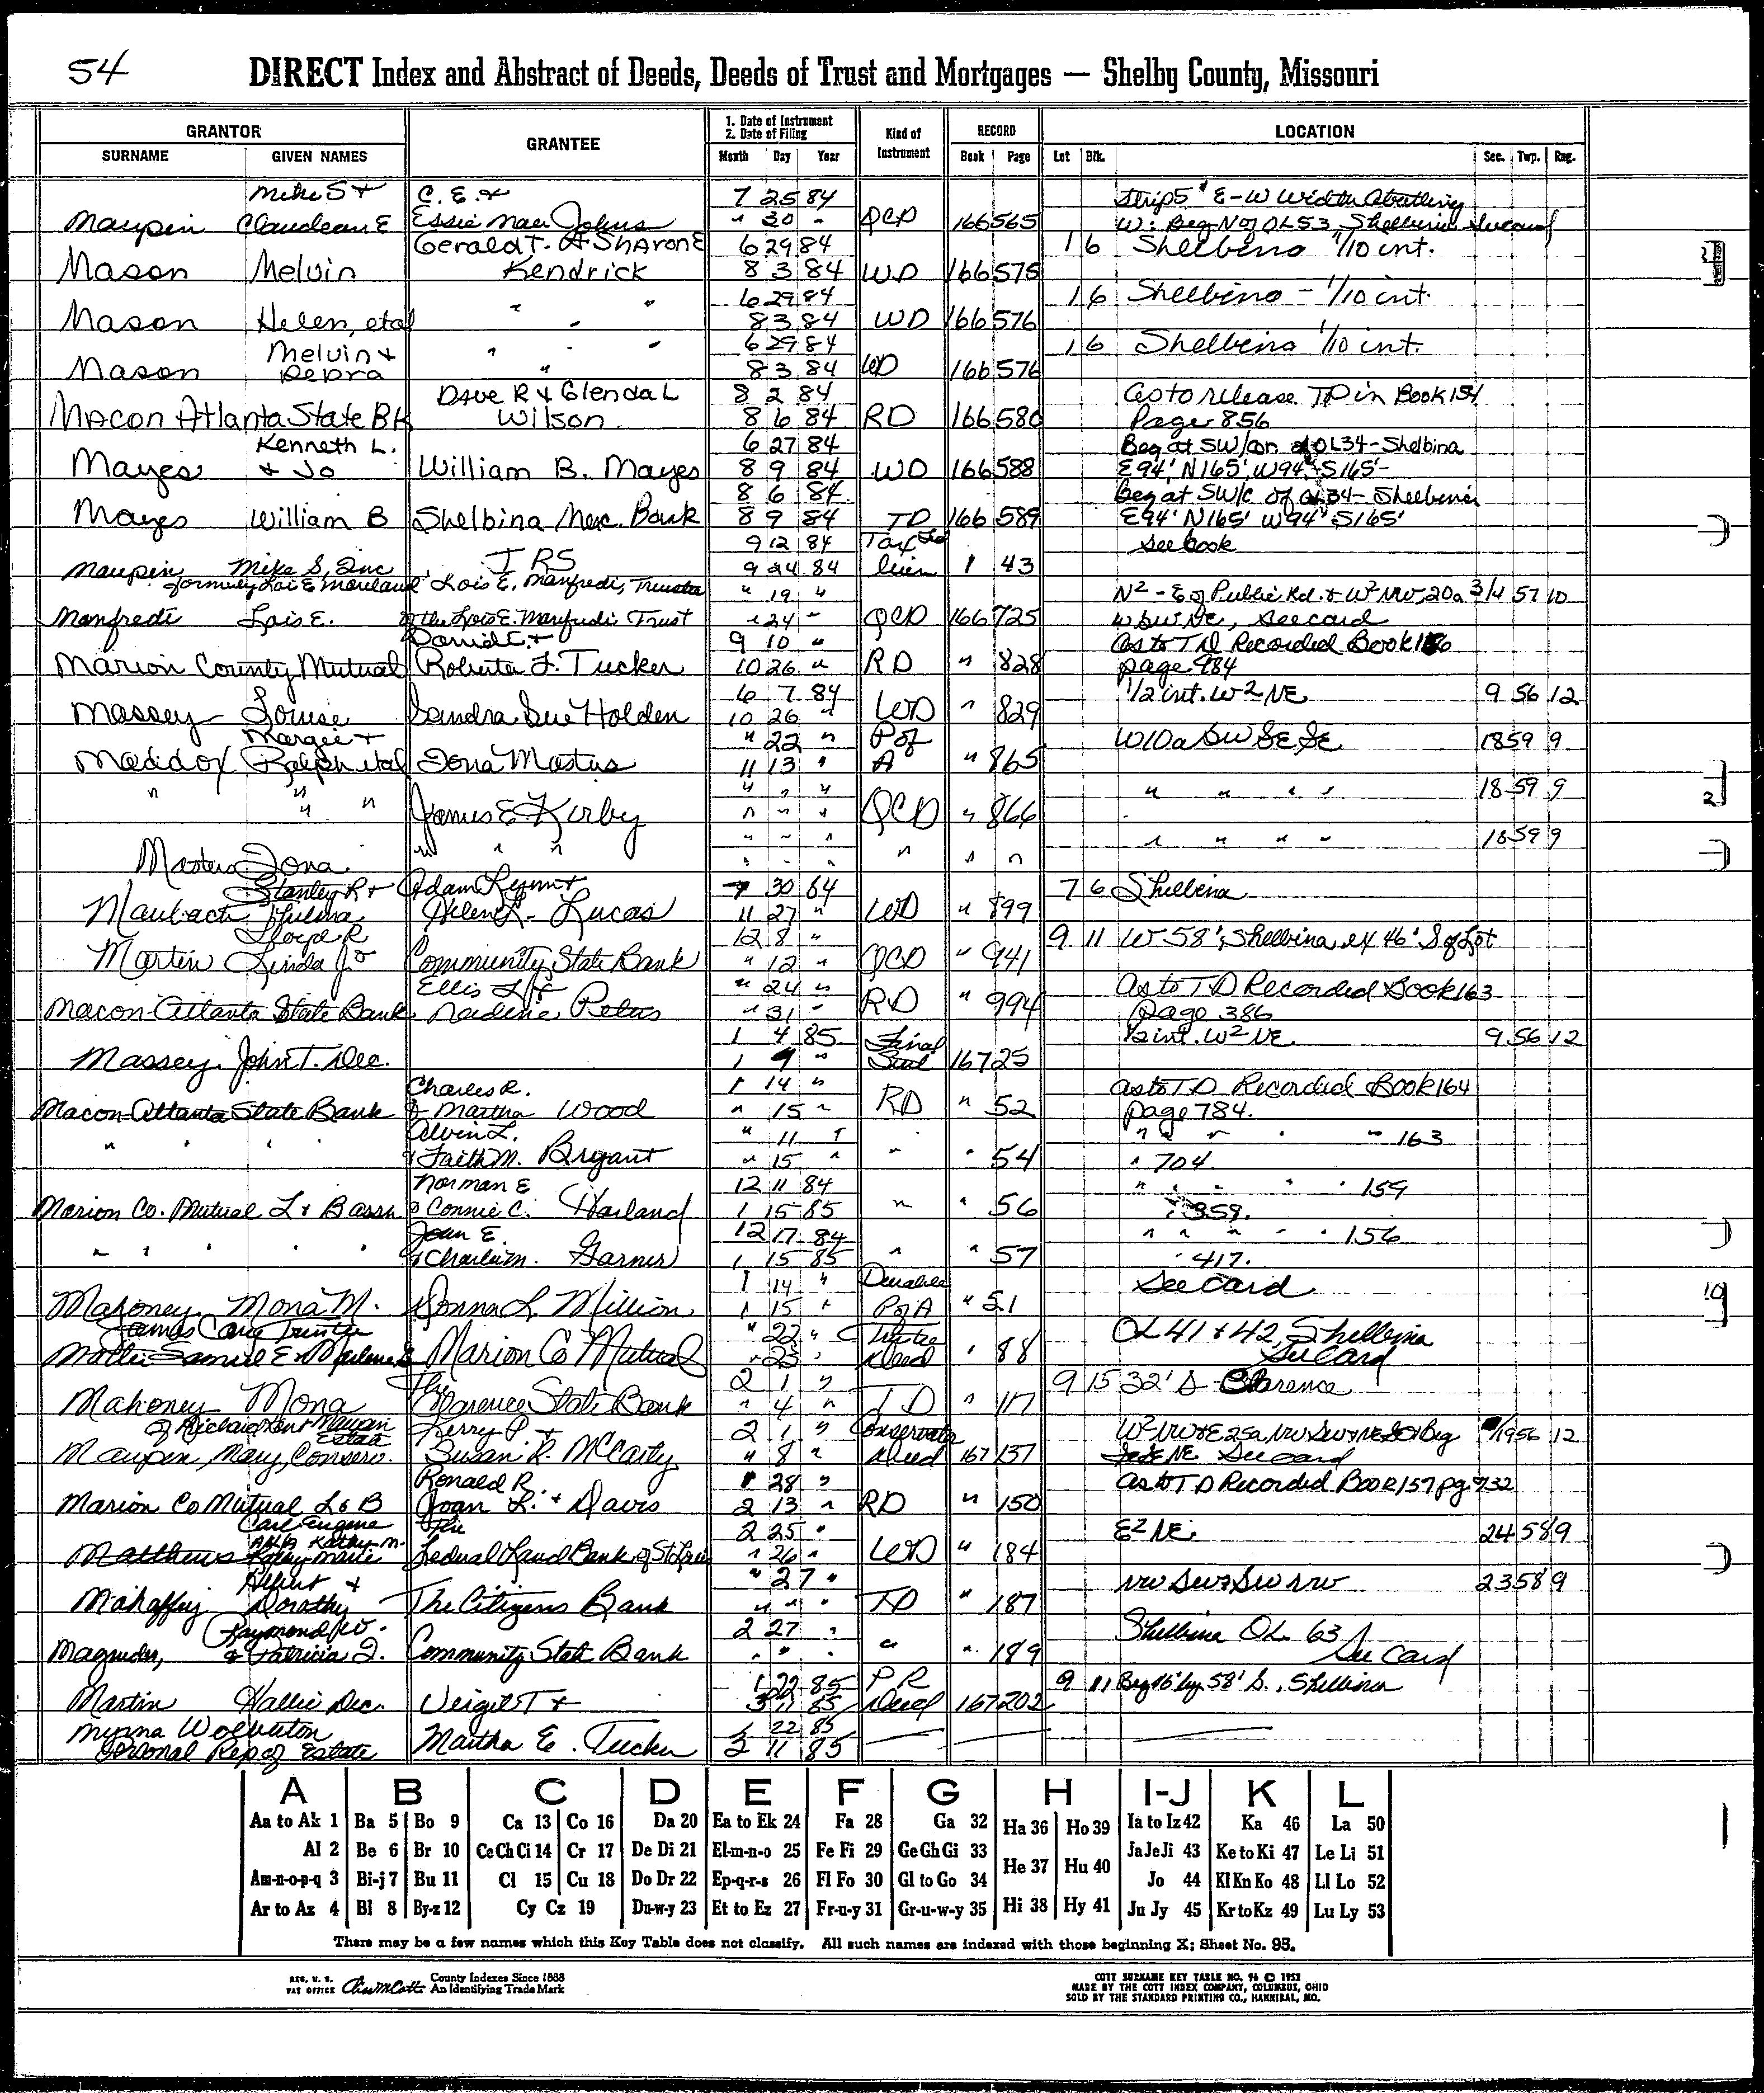 54 DIRECT Index and Abstract of Deeds, Deeds of Trust and Mortgages — Shelby County, Missouri
GRANTOR GRANTEE 1. Date of Instrument 2. Date of Filing Kind of Instrument RECORD LOCATION
SURNAME GIVEN NAMES Month Day Year Book Page Lot Blk. Sec. Twp. Rng.
Mike S + C. E. + 7 25 84 Strip 5' E-W Width Abutting
Maupin Claudean E Essie Mae Johns " 30 " QCD 166 565 W: Beg N of OL53 Shelbina See card
Gerald T. & Sharon E 6 29 84 1 6 Shelbina 1/10 int.
Mason Melvin Kendrick 8 3 84 WD 166 575
6 29 84 1 6 Shelbina - 1/10 int.
Mason Helen, etal " " 8 3 84 WD 166 576
Melvin + " " 6 29 84 1 6 Shelbina 1/10 int.
Mason Debra " 8 3 84 WD 166 576
Dave R + Glenda L 8 2 84 as to release TD in Book 154
Macon Atlanta State Bk Wilson 8 6 84 RD 166 580 Page 856
Kenneth L. 6 27 84 Beg at SW/cor of OL34-Shelbina
Mayes + Jo William B. Mayes 8 9 84 WD 166 588 E94', N165', W94', S165'-
8 6 84 Beg at SW/c of OL34-Shelbina
Mayes William B Shelbina Merc. Bank 8 9 84 TD 166 589 E94' N165' W94' S165'
9 12 84 Tax see book
Maupin Mike S, Inc IRS 9 24 84 lien 1 43
formerly Lois E Lois E. Manfredi, Trustee " 19 " N2 - E of Public Rd. & W2 NW, 20a 3/4 57 10
Manfredi Lois E. of the Lois E. Manfredi Trust " 24 " QCD 166 725 W SW NE, see card
David C. + 9 10 " As to TD Recorded Book 156
Marion County Mutual Roberta J. Tucker 10 26 " RD " 828 page 984
6 7 84 1/2 int. W2 NE 9 56 12
Massey Louise Sandra Sue Holden 10 26 " WD " 829
Margie + " 22 " P of W10a SW SE SE 18 59 9
Maddox Ralph etal Iona Masters 11 13 " A " 865
" " " " " " " " " " 18 59 9
" " James E Kirby " " " QCD " 866
" " " " " " " " " " 18 59 9
Masters Iona " " " " " "
Stanley R + Adam Lynn + 7 30 84 7 6 Shelbina
Maubach Thelma Helen L - Lucas 11 27 " WD " 899
Lloyd R 12 8 " 9 11 W 58', Shelbina, ex 46' S of Lot
Martin Linda J Community State Bank " 12 " QCD " 941
Ellis L + " 24 " As to TD Recorded Book 163
Macon-Atlanta State Bank Nadine Peters " 31 " RD " 994 page 386
1 4 85 Final 1/2 int. W2 NE 9 56 12
Massey, John T. Dec. 1 9 " Setl 167 25
Charles R. 1 14 " As to TD Recorded Book 164
Macon-Atlanta State Bank & Martha Wood " 15 " RD " 52 page 784.
Alvin L. " 11 " " " " " " 163
" " " & Faith M. Bryant " 15 " " " 54 " 704
Norman E 12 11 84 " " " " 159
Marion Co. Mutual L & B assn & Connie C. Harland 1 15 85 " " 56 " 359.
Joan E. 12 17 84 " " " " 156
" " " " " & Charles M. Garner 1 15 85 " " 57 " 417.
1 14 " Durable See Card
Mahoney Mona M. Donna L Million 1 15 " P of A " 51
James Cary Trustee " 22 " Trustee OL 41 + 42 Shelbina
Samuel E + Marlene Marion Co Mutual " 23 " Deed " 88 See Card
The 2 1 " 9 15 32' S - Clarence
Mahoney Mona Clarence State Bank " 4 " TD " 117
of Richard Kent Maupin Estate Kerry P + 2 1 " Conservator 56 12
Maupin, Mary, Conserv. Susan R. McCarty " 8 " Deed 167 137 See card
Ronald R. 1 28 " As to TD Recorded Book 157 pg 932
Marion Co Mutual L & B Joan L. + Davis 2 13 " RD " 150
Carl Eugene The 2 25 " E2 NE. 24 58 9
AKA Kathy M.
Matthews Kathy Marie Federal Land Bank of St Louis " 26 " WD " 184
Albert + " 27 " NW SW & SW NW 23 58 9
Mahaffey Dorothy The Citizens Bank " " " TD " 187
Raymond W. 2 27 " Shelbina OL 63
Magruder, & Patricia J. Community State Bank " " " " " 189 See Card
1 22 85 PR 9 11 Beg 16' by 58' S., Shelbina
Martin Hallie Dec. Veigil T + 3 11 85 Deed 167 202
Myrna Wolverton 22 85
Personal Rep of Estate Martha E. Tucker 3 11 85
A B C D E F G H I-J K L
Aa to Ak 1 Ba 5 Bo 9 Ca 13 Co 16 Da 20 Ea to Ek 24 Fa 28 Ga 32 Ha 36 Ho 39 Ia to Iz 42 Ka 46 La 50
Al 2 Be 6 Br 10 Ce Ch Ci 14 Cr 17 De Di 21 El-m-n-o 25 Fe Fi 29 Ge Gh Gi 33 He 37 Hu 40 Ja Je Ji 43 Ke to Ki 47 Le Li 51
Am-n-o-p-q 3 Bi-j 7 Bu 11 Cl 15 Cu 18 Do Dr 22 Ep-q-r-s 26 Fl Fo 30 Gl to Go 34 Jo 44 Kl Kn Ko 48 Ll Lo 52
Ar to Az 4 Bl 8 By-z 12 Cy Cz 19 Du-w-y 23 Et to Ez 27 Fr-u-y 31 Gr-u-w-y 35 Hi 38 Hy 41 Ju Jy 45 Kr to Kz 49 Lu Ly 53
There may be a few names which this Key Table does not classify. All such names are indexed with those beginning X; Sheet No. 95.
REG. U. S. PAT OFFICE County Indexes Since 1888 An Identifying Trade Mark
COTT SURNAME KEY TABLE NO. 96 © 1952
MADE BY THE COTT INDEX COMPANY, COLUMBUS, OHIO
SOLD BY THE STANDARD PRINTING CO., HANNIBAL, MO.